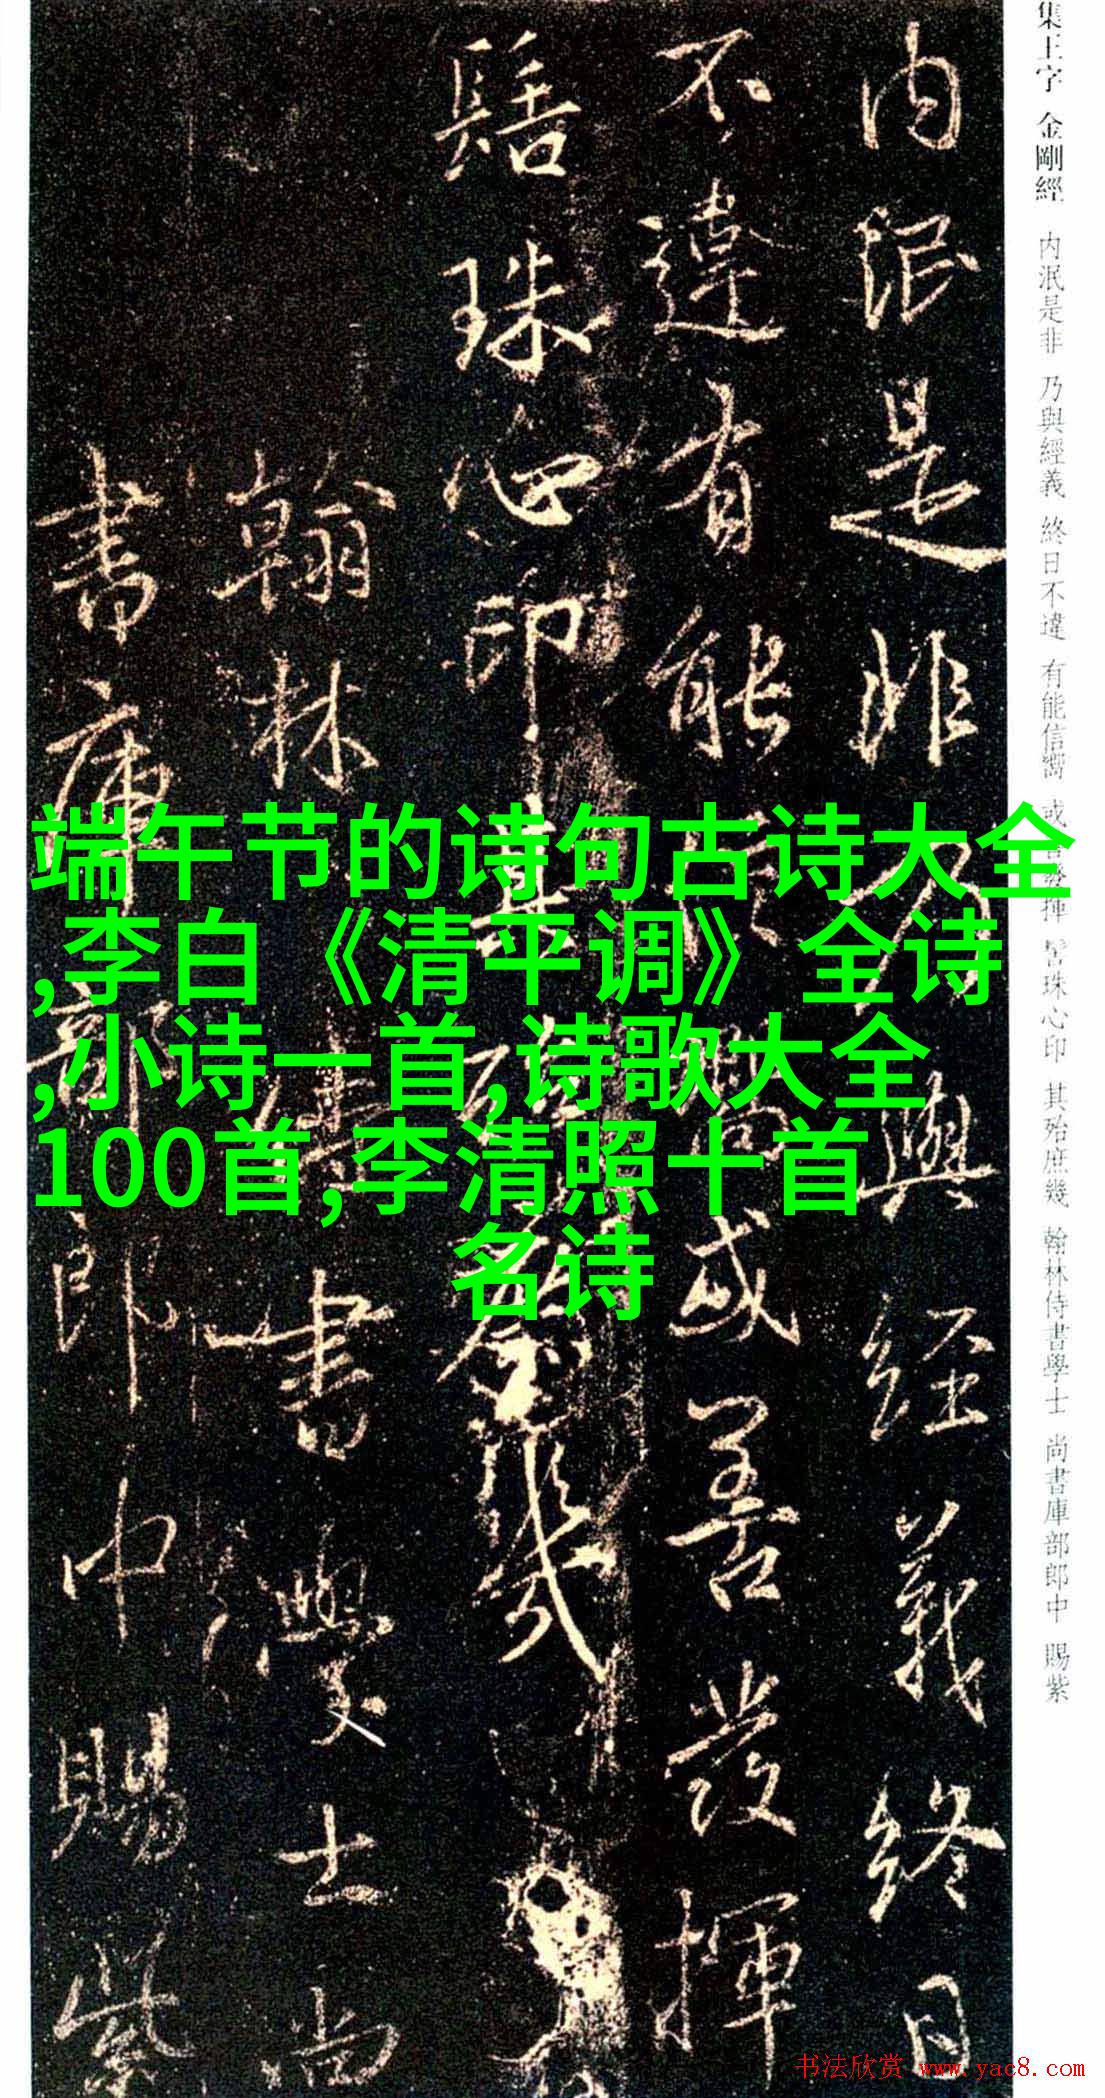 集王字 金剛經 内泯是非 乃與經義 終日不違 有能信嚮 或善發揮 髻珠心印 其殆庶幾 翰林侍書學士 尚書庫部郎中 賜紫
内泯是非乃與經義終日
不違有能信嚮或善發揮
髻珠心印其殆庶幾
翰林侍書學士尚
書庫部郎中賜紫
端午节的诗句古诗大全
,李白《清平调》全诗
,小诗一首,诗歌大全
100首,李清照十首
名诗
书法欣赏 www.yac8.com